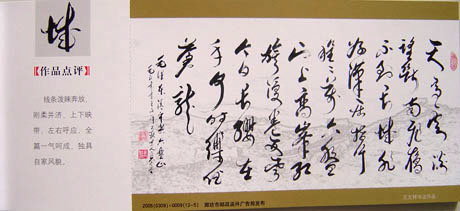 城
【作品点评】
线条泼辣奔放，
刚柔并济、上下映
带，左右呼应，全
篇一气呵成，独具
自家风貌。
天高云淡
望断南飞雁
不到长城非
好汉屈指行
程二万六盘
山上高峰红
旗漫卷西风
今日长缨在
手何时缚住
苍龙
2005(0309)-0009(12-5) 廊坊市邮政函件广告局发布